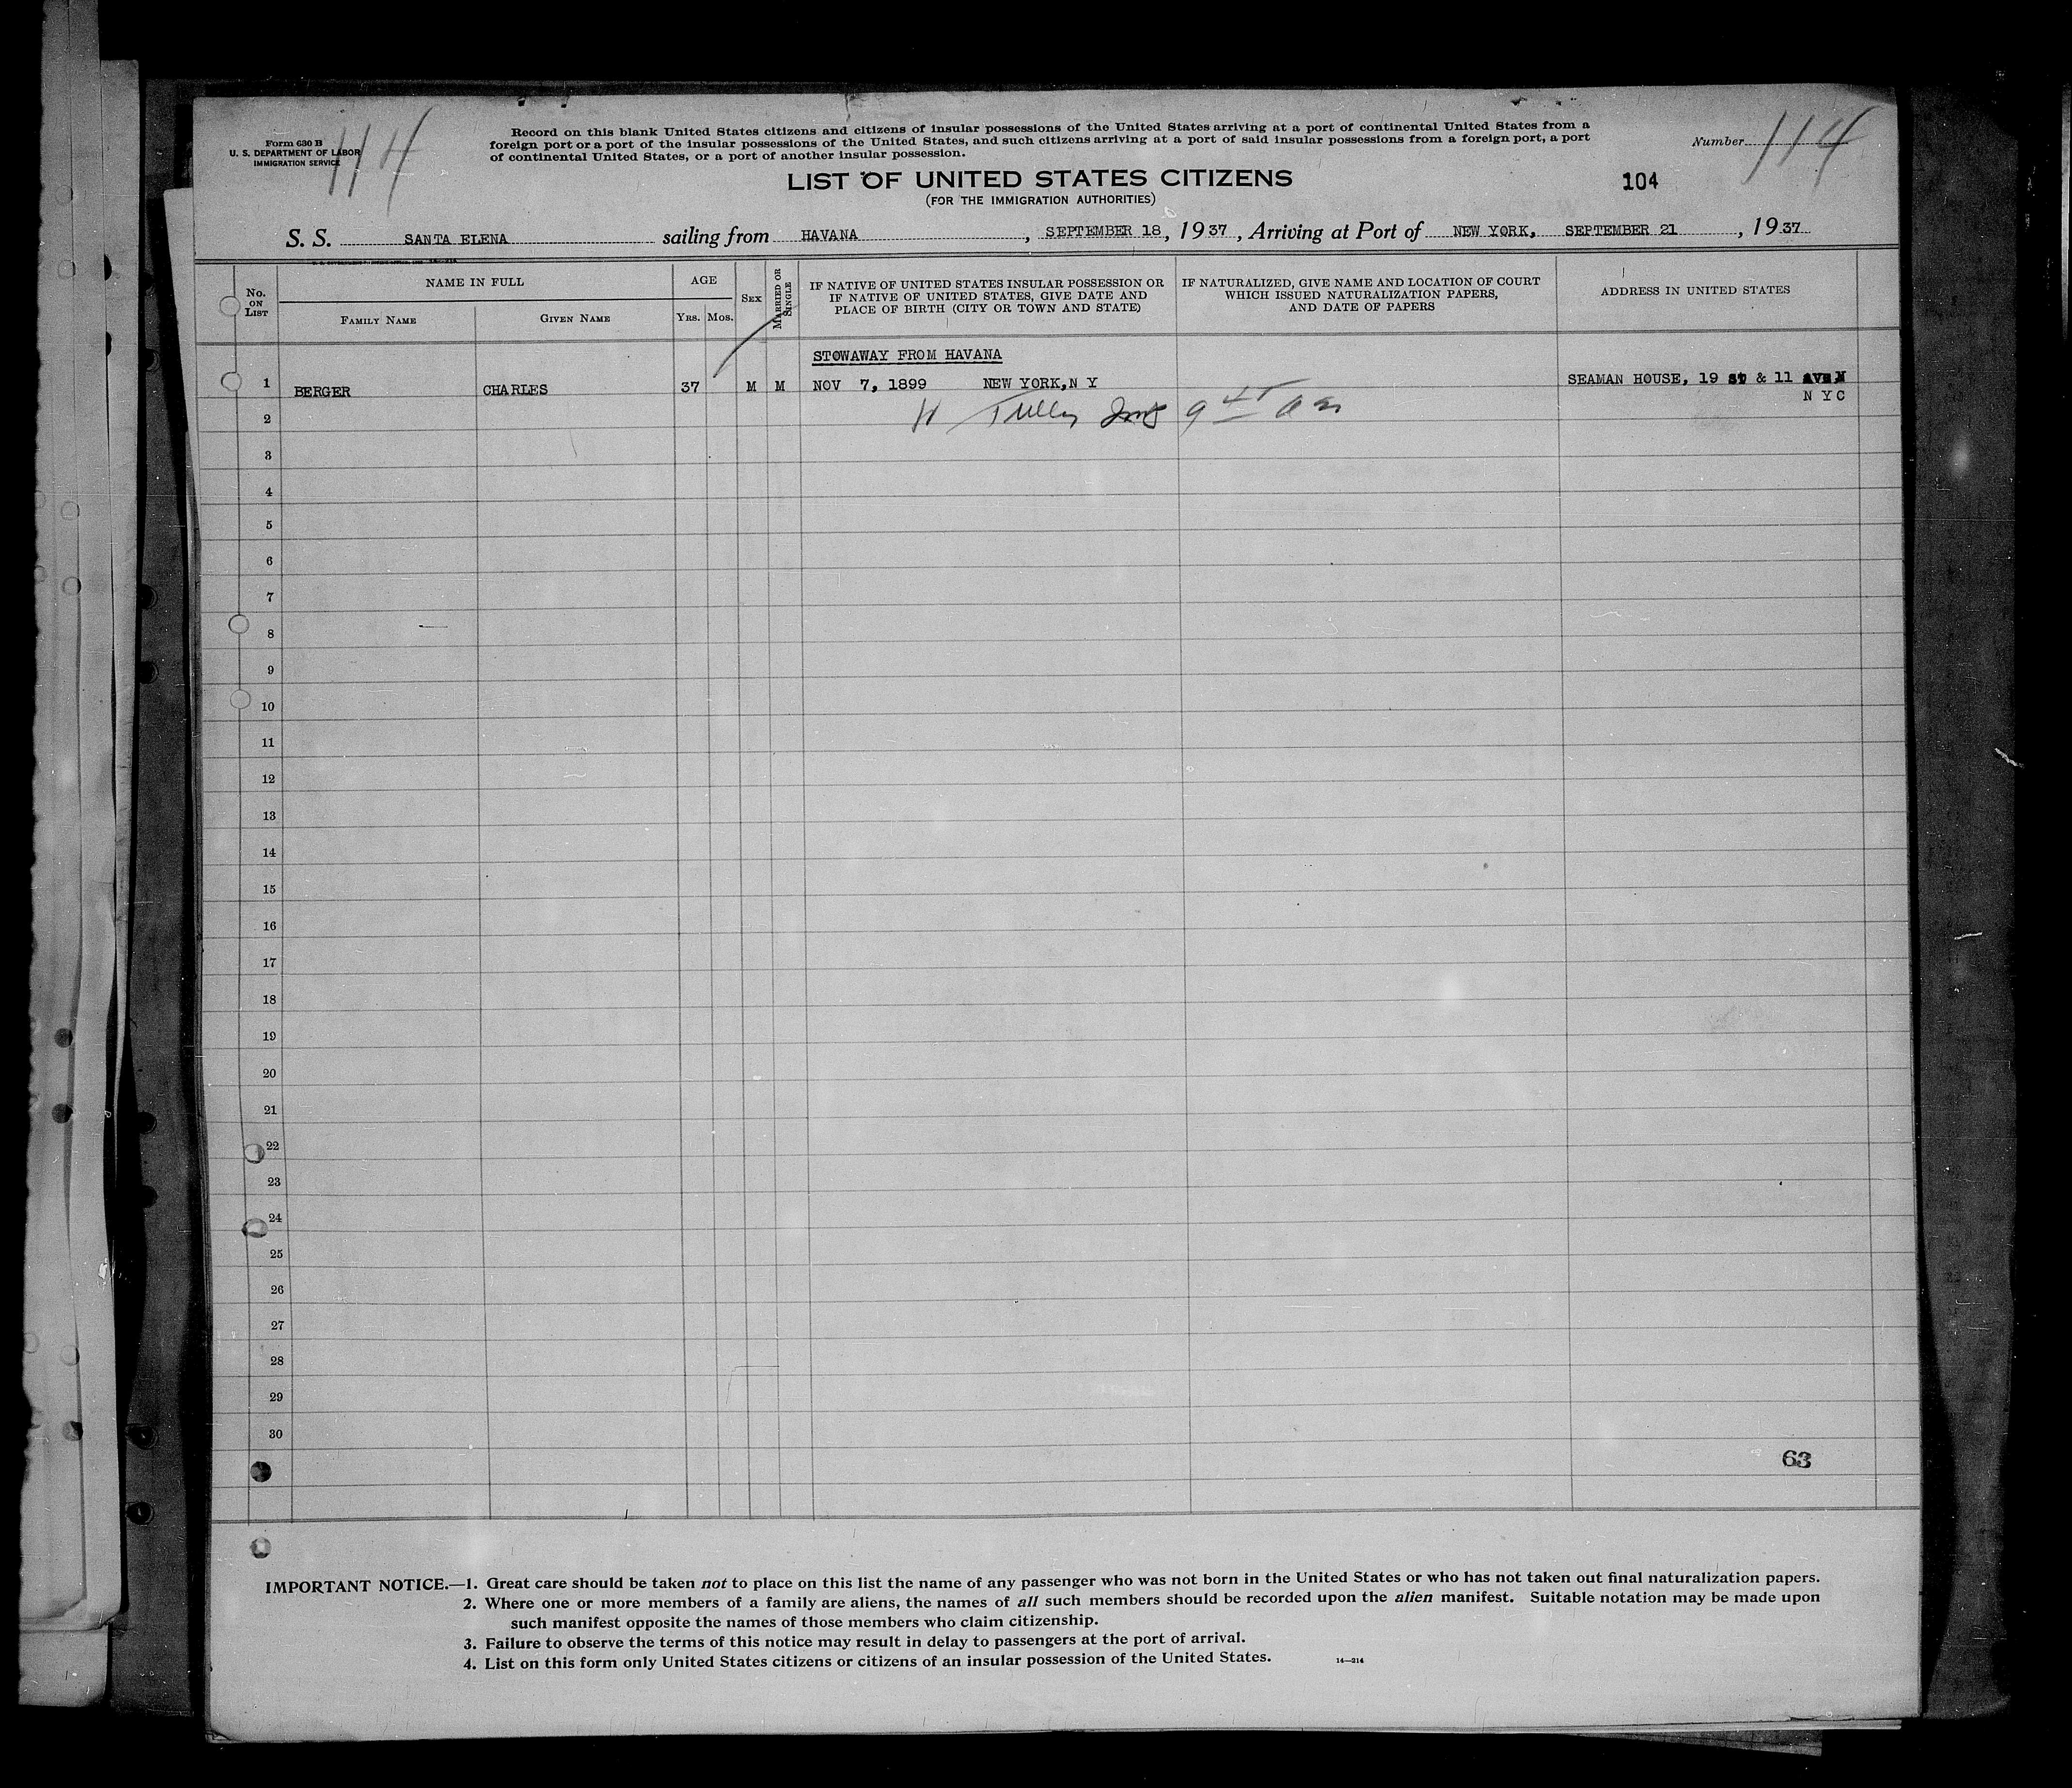 Form 630 B
U. S. DEPARTMENT OF LABOR
IMMIGRATION SERVICE
114
Record on this blank United States citizens and citizens of insular possessions of the United States arriving at a port of continental United States from a
foreign port or a port of the insular possessions of the United States, and such citizens arriving at a port of said insular possessions from a foreign port, a port
of continental United States, or a port of another insular possession.
Number 114
LIST OF UNITED STATES CITIZENS
(FOR THE IMMIGRATION AUTHORITIES)
104
S. S. SANTA ELENA sailing from HAVANA, SEPTEMBER 18, 1937, Arriving at Port of NEW YORK, SEPTEMBER 21, 1937
No. ON LIST
NAME IN FULL
FAMILY NAME
GIVEN NAME
AGE
YRS. MOS.
SEX
MARRIED OR SINGLE
IF NATIVE OF UNITED STATES INSULAR POSSESSION OR
IF NATIVE OF UNITED STATES, GIVE DATE AND
PLACE OF BIRTH (CITY OR TOWN AND STATE)
IF NATURALIZED, GIVE NAME AND LOCATION OF COURT
WHICH ISSUED NATURALIZATION PAPERS,
AND DATE OF PAPERS
ADDRESS IN UNITED STATES
STOWAWAY FROM HAVANA
1 BERGER CHARLES 37 M M NOV 7, 1899 NEW YORK,N Y SEAMAN HOUSE, 19 st & 11 ave
N Y C
2
3
4
5
6
7
8
9
10
11
12
13
14
15
16
17
18
19
20
21
22
23
24
25
26
27
28
29
30
63
IMPORTANT NOTICE.—1. Great care should be taken not to place on this list the name of any passenger who was not born in the United States or who has not taken out final naturalization papers.
2. Where one or more members of a family are aliens, the names of all such members should be recorded upon the alien manifest. Suitable notation may be made upon
such manifest opposite the names of those members who claim citizenship.
3. Failure to observe the terms of this notice may result in delay to passengers at the port of arrival.
4. List on this form only United States citizens or citizens of an insular possession of the United States.
14—214